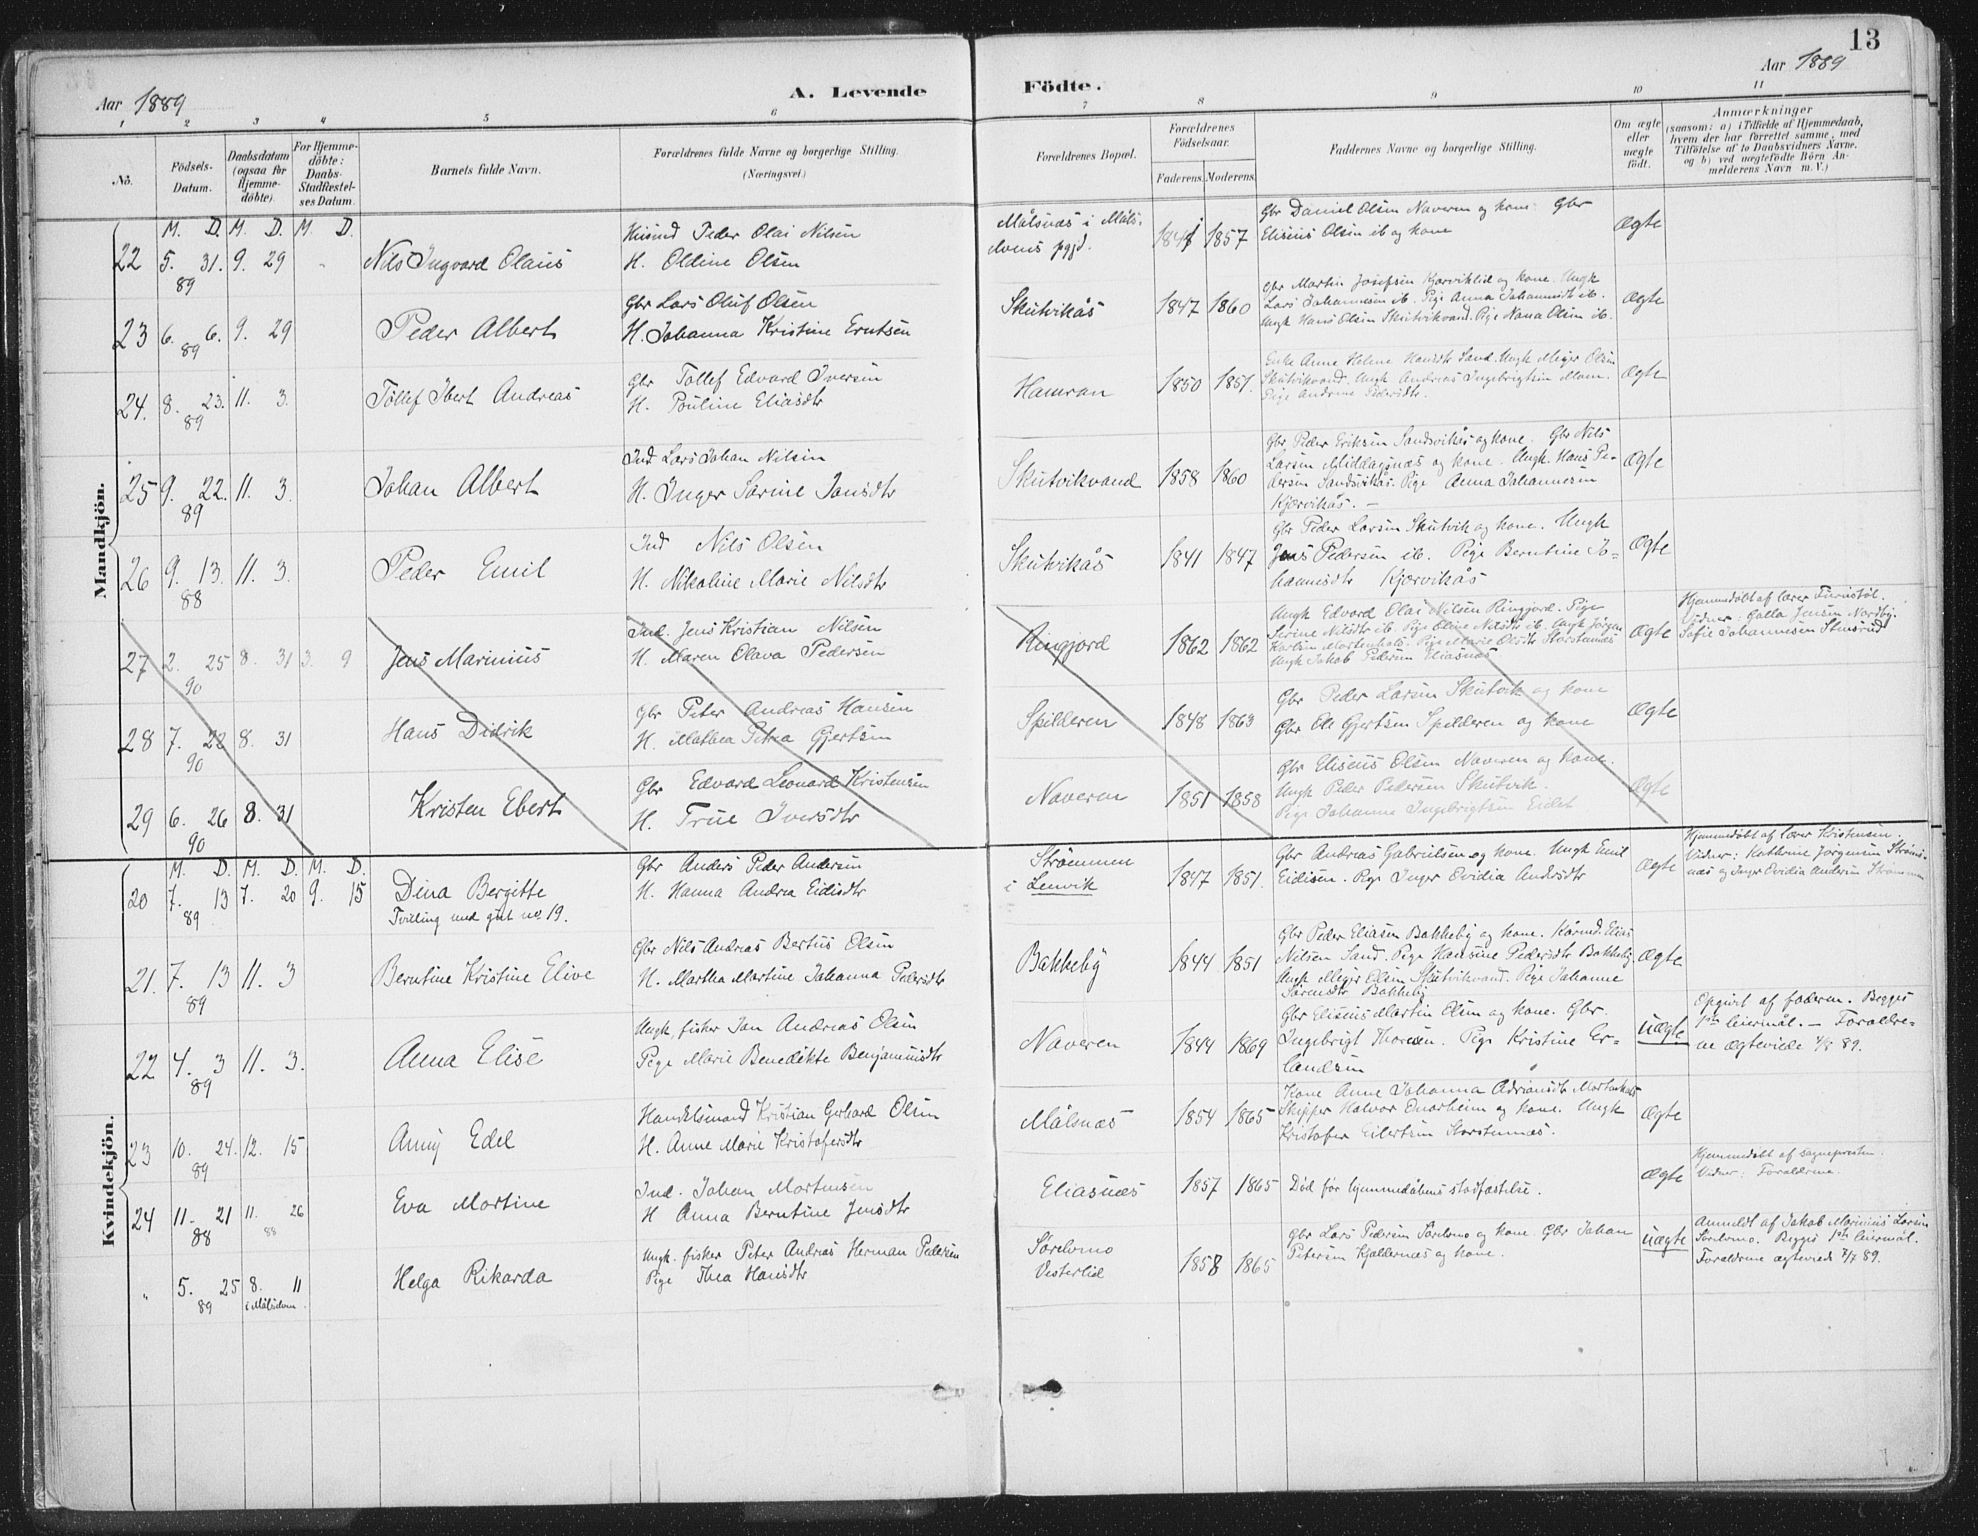 13
Aar 1889
A. Levende Födte.
Aar 1889
1 2 3 4 5 6 7 8 9 10 11
No.
Födsels-Datum.
Daabsdatum (ogsaa for Hjemme-döbte).
For Hjemme-döbte: Daabs-Stadfæstel-ses Datum.
Barnets fulde Navn.
Forældrenes fulde Navne og borgerlige Stilling.
(Næringsvei.)
Forældrenes Bopæl.
Forældrenes Födselsaar.
Faderens. Moderens.
Faddernes Navne og borgerlige Stilling.
Om ægte eller uægte födt.
Anmærkninger
(saasom: a) i Tilfælde af Hjemmedaab,
hvem der har forrettet samme, med
Tilföielse af to Daabsvidners Navne,
og b) ved uægtefödte Börn An-
melderens Navn m. V.)
Mandkjön.
M. D. M. D. M. D.
22 5. 31. 9. 29
89
Nils Ingvard Olaus
Husmd Peder Olai Nilsen
H. Oldine Olsen
Målsnæs i Måls-
elvens pgjd.
1841 1857
Gbr Daniel Olsen Naveren og kone. Gbr
Eliseus Olsen ib og kone
Ægte
23 6. 6. 9. 29
89
Peder Albert
Gbr Lars Oluf Olsen
H. Johanna Kristine Erntsen
Skutvikås
1847 1860
Gbr Martin Josefsen Kjærviklid og kone. Ungk
Lars Johannesen ib. Pige Anna Johannesdt ib.
Ungk Hans Olsen Skutvikvand. Pige Nana Olsen ib.
Ægte
24. 8. 23. 11. 3.
89
Tollef Ibert Andreas
Gbr Tollef Edvard Iversen
H. Pouline Eliasdtr
Hamran
1850 1851.
Enke Anne Helene Hansdtr Sand. Ungk Meyer Olsen
Skutvikvand. Ungk Andreas Ingebrigtsen Moen.
Pige Andrine Pedersdtr.
Ægte
25 9. 22. 11. 3.
89
Johan Albert
Ind Lars Johan Nilsen
H. Inger Sarine Jansdtr
Skutvikvand
1858 1860
Gbr Peder Eriksen Sandsvikås og kone. Gbr Nils
Larsen Middagsnæs og kone. Ungk. Hans Pe-
dersen Sandsvikås. Pige Anna Johannesen
Kjærvikås. —
Ægte
26 9. 13. 11. 3.
88
Peder Emil
Ind Nils Olsen
H. Nikoline Marie Nilsdtr
Skutvikås
1841 1847
Gbr Peder Larsen Skutvik og kone. Ungk
Jens Pedersen ib. Pige Berntine Jo-
hannesdtr Kjærvikås
Ægte
27 2. 25 8. 31 3. 9
90
Jens Marinius
Ind. Jens Kristian Nilsen
H. Maren Olava Pedersen
Ringjord
1862 1862
Ungk Edvard Olai Nilsen Ringjord. Pige
Serine Nilsdtr ib. Pige Oline Nilsdtr ib. Ungk Jørgen
Karlsen Mortenhals. Pige Marie Olsdtr Storstennæs
Ungk Jakob Pedersen Eliasnæs
Ægte
Hjemmedøbt af lærer Furustøl.
Vidner: Galla Jensen Nordby.
Sofie Johannesen Stensrud
28 7. 22 8. 31
90
Hans Didrik
Gbr Peter Andreas Hansen
H. Mathea Petrea Gjertsen
Spilderen
1848 1863
Gbr Peder Larsen Skutvik og kone
Gbr Ole Gjertsen Spilderen og kone
Ægte
29 6. 26 8. 31
90
Kristen Ebert
Gbr Edvard Leonard Kristensen
H. True Iversdtr
Naveren
1851 1858
Gbr Eliseus Olsen Naveren og kone.
Ungk Peder Pedersen Skutvik.
Pige Johanna Ingebrigtsen Eidet
Ægte
Kvindekjön.
M. D. M. D. M. D.
20 7. 13 7. 20 9. 15
89
Dina Bergitte
Tvilling med gut no 19.
Gbr Anders Peder Andersen
H. Hanna Andrea Eidisdtr
Strømmen
i Lenvik
1847 1851.
Gbr Andreas Gabrielsen og kone. Ungk Emil
Eidisen. Pige Inger Ovidia Andersdtr
Ægte
Hjemmedøbt af lærer Kristensen.
Vidner: Kathrine Jørgensen Strøms-
næs og Inger Ovidia Andersen Strømmen
21. 7. 13 11. 3
89
Berntine Kristine Elive
Gbr Nils Andreas Bertus Olsen
H. Martha Martine Johanna Pedersdtr
Bakkeby
1844 1851
Gbr Peder Eliasen Bakkeby og kone. Kårmd. Elias
Nilsen Sand. Pige Hansine Pedersdtr Bakkeby
Ungk Meyer Olsen Skutvikvand. Pige Johanne
Sørensdtr Bakkeby
Ægte
22 4. 3 11. 3.
89
Anna Elise
Ungk. fisker Jan Andreas Olsen
Pige Marie Benedikte Benjaminsdtr
Naveren
1844 1869
Gbr Eliseus Martin Olsen og kone. Gbr.
Ingebrigt Thoresen. Pige Kristine Er-
landsen
uægte
Opgivet af faderen. Begges
1ste leiermål. — Forældre-
ne ægteviede 4/8 89.
23 10. 24. 12. 15
89
Anny Edel
Handelsmand Kristian Gerhard Olsen
H. Anne Marie Kristofersdtr
Målsnæs
1854 1865
Kone Anne Johanna Adriansdtr Mortenhals
Skipper Halvor Enarheim og kone. Ungk
Kristofer Eilertsen Storstennæs.
Ægte
24 11. 21 11. 26
88 88
Eva Martine
Ind. Johan Mortensen
H Anna Berntine Jensdtr
Eliasnæs
1857 1865
Død før hjemmedåbens stadfæstelse.
Ægte
Hjemmedøbt af sognepresten.
Vidner: Forældrene.
" 5. 25 8. 11
89 i Målselven.
Helga Rikarda
Ungk. fisker Peter Andreas Herman Pedersen
Pige Thea Hansdtr
Sørelvmo
Vesterlid
1858 1865
Gbr Lars Pedersen Sørelvmo og kone Gbr Johan
Petersen Kjellernæs og kone.
uægte
Anmeldt af Jakob Marinius Larsen
Sørelvmo. Begges 1ste leiermål.
Forældrene ægteviede 7/7 89.